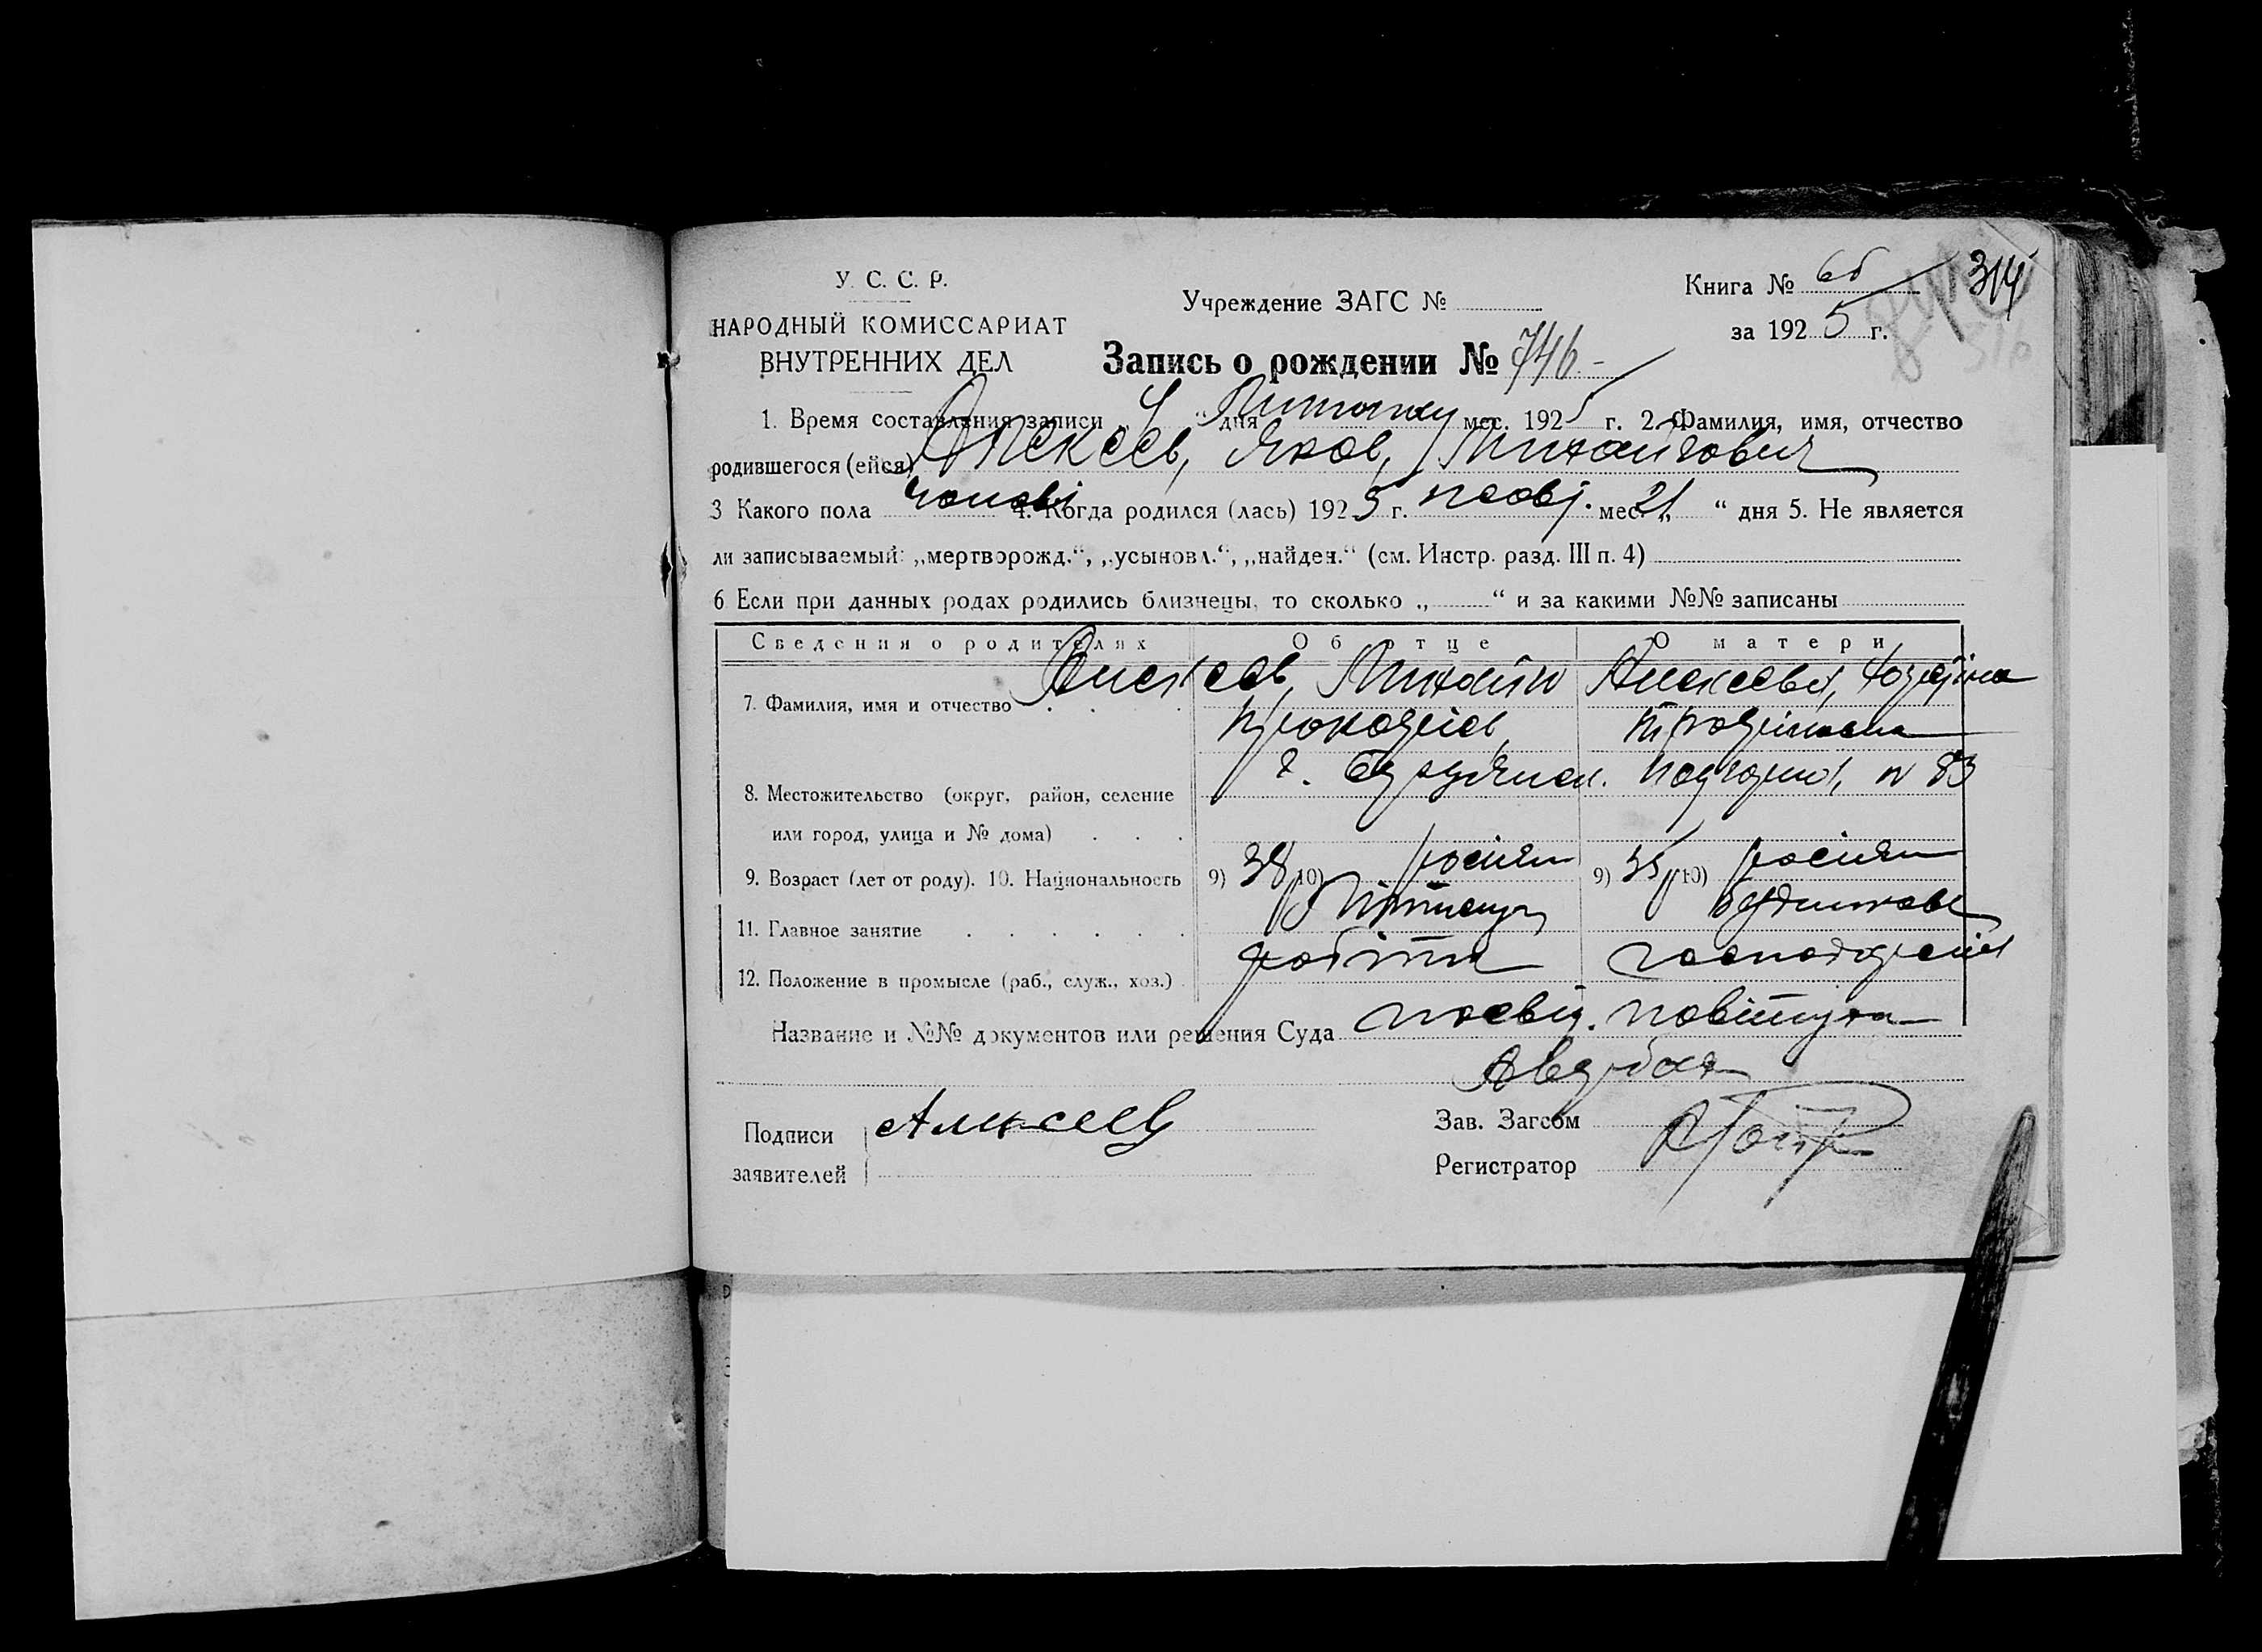 У. С. С. Р.
НАРОДНЫЙ КОМИССАРИАТ
ВНУТРЕННИХ ДЕЛ
Учреждение ЗАГС №
Книга № 314
за 1925 г.
Запись о рождении № 746
1. Время составления записи „4“ дня Лютого мес. 1925 г. 2. Фамилия, имя, отчество
родившегося (ейся) Алексеев, Яков, Михайлович
3 Какого пола чолов. 4. Когда родился (лась) 1925 г. мес. „21“ дня 5. Не является
ли записываемый: „мертворожд.“, „усыновл.“, „найден.“ (см. Инстр. разд. III п. 4)
6 Если при данных родах родились близнецы, то сколько „ “ и за какими №№ записаны
Сведения о родителях Об отце О матери
7. Фамилия, имя и отчество Алексеев, Михайло Алексеева,
Прокоф Трофимовна
8. Местожительство (округ, район, селение № 83
или город, улица и № дома)
9. Возраст (лет от роду). 10. Национальность 9) 38 10) росіян 9) 35 10) росіян
11. Главное занятие
12. Положение в промысле (раб., служ., хоз.) робітн господарсті
Название и №№ документов или решения Суда посвід. повітуха
Подписи Алексеев
заявителей
Зав. Загсом
Регистратор